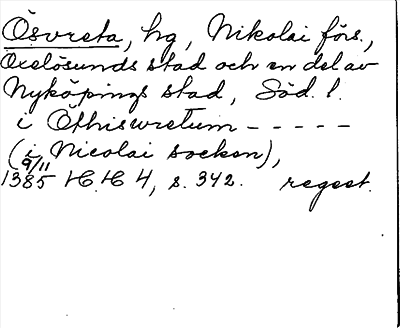 Ösvreta, hg, Nikolai förs.,
Oxelösunds stad och en del av
Nyköpings stad, Söd. l.
i Öthiswretum - - - - -
(i Nicolai socken),
9/11
1385 H.H 4, s. 342. regest.